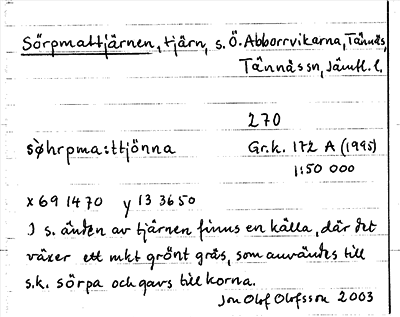 Sörpmattjärnen, tjärn, s. Ö. Abborrvikarna, Tännäs,
Tännäs sn, Jämtl. l.
270
sø̀hrpma:ttjönna Gr.k. 172 A (1995)
1:50 000
x 69 14 70 y 13 36 50
I s. änden av tjärnen finns en källa, där det
växer ett mkt grönt gräs, som användes till
s.k. sörpa och gavs till korna.
Jon Olof Olofsson 2003